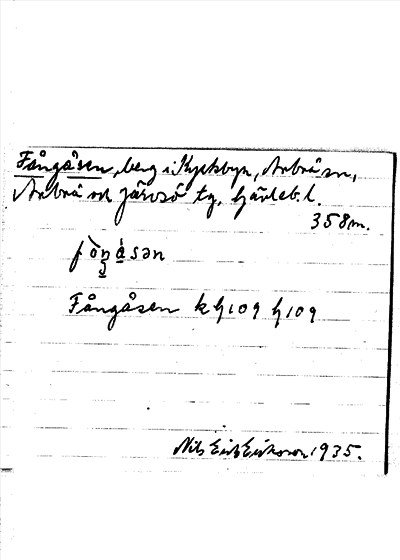 Fångåsen, berg i Kyrkbyn, Arbrå sn,
Arbrå och Järvsö tg, Gävleb. l.
358 m.
Fångåsen k h 109 h 109
Nils Eric Eriksson 1935.